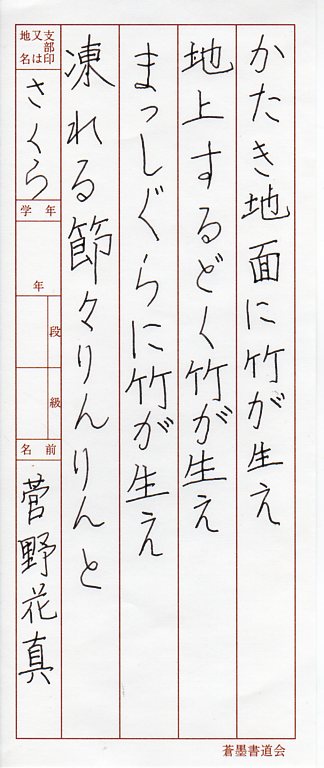 かたき地面に竹が生え
地上するどく竹が生え
まっしぐらに竹が生え
凍れる節々りんりんと
支部印又は地名
さくら
学年
年
段
級
名前
菅野花真
蒼墨書道会